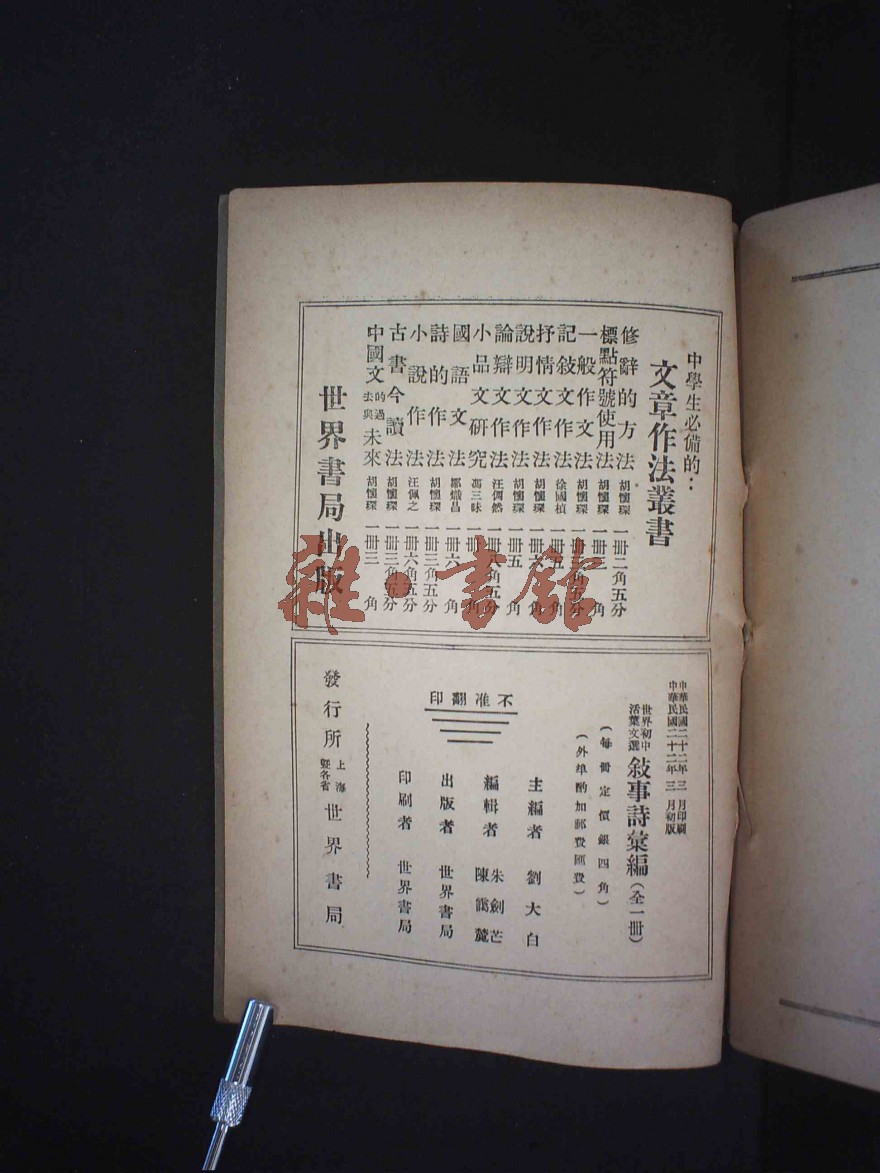 中學生必備的：
文章作法叢書
修辭的方法 胡懷琛 一冊二角五分
標點符號使用法 胡懷琛 一冊二角
一般作文法 胡懷琛 一冊 角五分
記敍文作法 徐國楨 一冊五角
抒情文作法 胡懷琛 一冊六角
說明文作法 胡懷琛 一冊五角
論辯文作法 汪倜然 一冊八角五分
小品文研究 馮三昧 一冊 角
國語文法 鄒熾昌 一冊六角
詩的作法 胡懷琛 一冊三角五分
小說作法 汪佩之 一冊六角五分
古書今讀法 胡懷琛 一冊三角五分
中國文的過去與未來 胡懷琛 一冊三角
世界書局出版
中華民國二十二年三月印刷
中華民國二十二年三月初版
世界初中活葉文選 敍事詩彙編（全一冊）
（每冊定價銀四角）
（外埠酌加郵費匯費）
不准翻印
主編者 劉大白
編輯者 朱劍芒 陳靄麓
出版者 世界書局
印刷者 世界書局
發行所 上海暨各省 世界書局
雜·書館